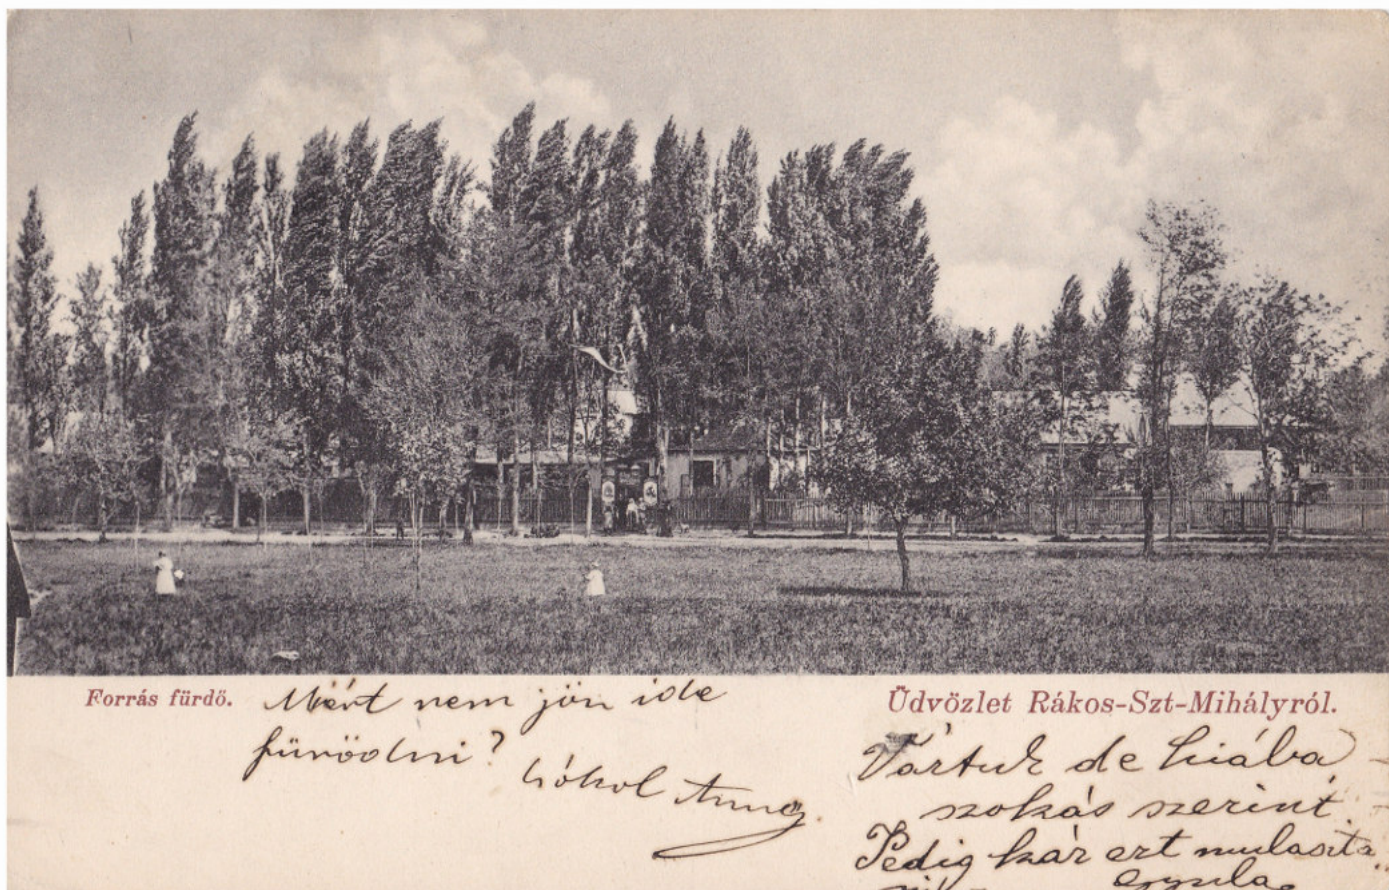 Forrás fürdő.
Üdvözlet Rákos-Szt-Mihályról.
Miért nem jön ide
fürödni?
Csókol Anna
Vártuk de hiába
szokás szerint
Pedig kár ezt mulaszta
ni